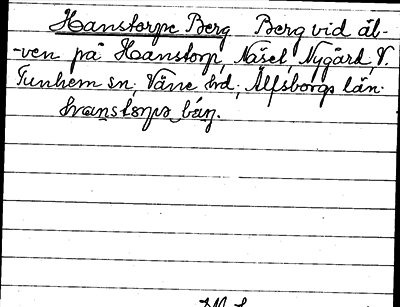 Hanstorps Berg Berg vid äl-
-ven på Hanstorp, Näset, Nygård, V.
Tunhem sn; Väne hd; Älfsborgs län.